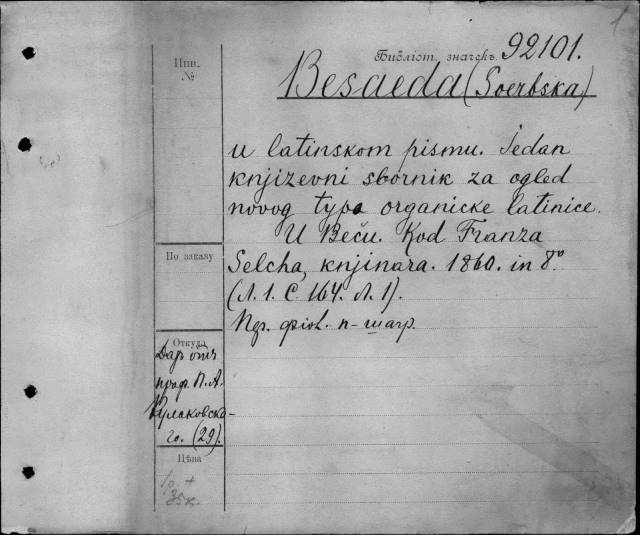 1
Библіот. значекъ 92101.
Инв.
№
Besaeda (Soerbska)
u latinskom pismu. Jedan
knjizevni sbornik za ogled
novog typa organicke latinice.
U Beču. Kod Franza
По заказу
Selcha, knjinara. 1860. in 8º
(Л. 1. С. 164. Л. 1).
Откуда
Даръ отъ
проф. П. А.
Кулаковска-
го. (29).
Цѣна
35к.